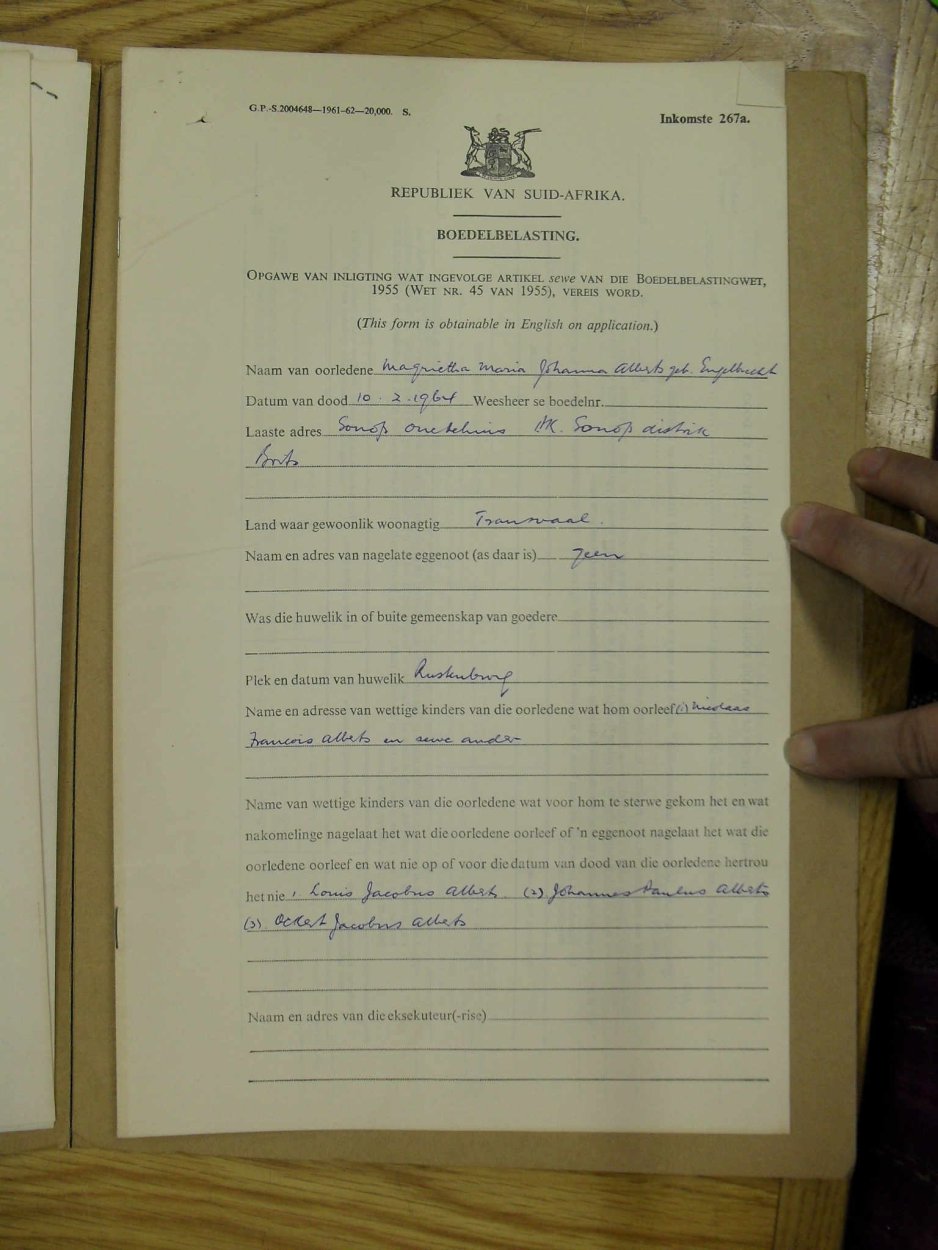 G.P.-S.2004648—1961-62—20,000. S.
Inkomste 267a.
REPUBLIEK VAN SUID-AFRIKA.
BOEDELBELASTING.
OPGAWE VAN INLIGTING WAT INGEVOLGE ARTIKEL sewe VAN DIE BOEDELBELASTINGWET,
1955 (WET NR. 45 VAN 1955), VEREIS WORD.
(This form is obtainable in English on application.)
Naam van oorledene Magrietha Maria Johanna Alberts geb. Engelbrecht
Datum van dood 10.2.1964 Weesheer se boedelnr.
Laaste adres Sonop ouetehuis PK. Sonop distrik
Brits
Land waar gewoonlik woonagtig Transvaal.
Naam en adres van nagelate eggenoot (as daar is) geen
Was die huwelik in of buite gemeenskap van goedere
Plek en datum van huwelik Rustenburg
Name en adresse van wettige kinders van die oorledene wat hom oorleef (1) Nicolaas
Francois Alberts en sewe ander
Name van wettige kinders van die oorledene wat voor hom te sterwe gekom het en wat
nakomelinge nagelaat het wat die oorledene oorleef of 'n eggenoot nagelaat het wat die
oorledene oorleef en wat nie op of voor die datum van dood van die oorledene hertrou
het nie 1 Louis Jacobus Alberts (2) Johannes Paulus Alberts
(3) Ockert Jacobus Alberts
Naam en adres van die eksekuteur(-rise)